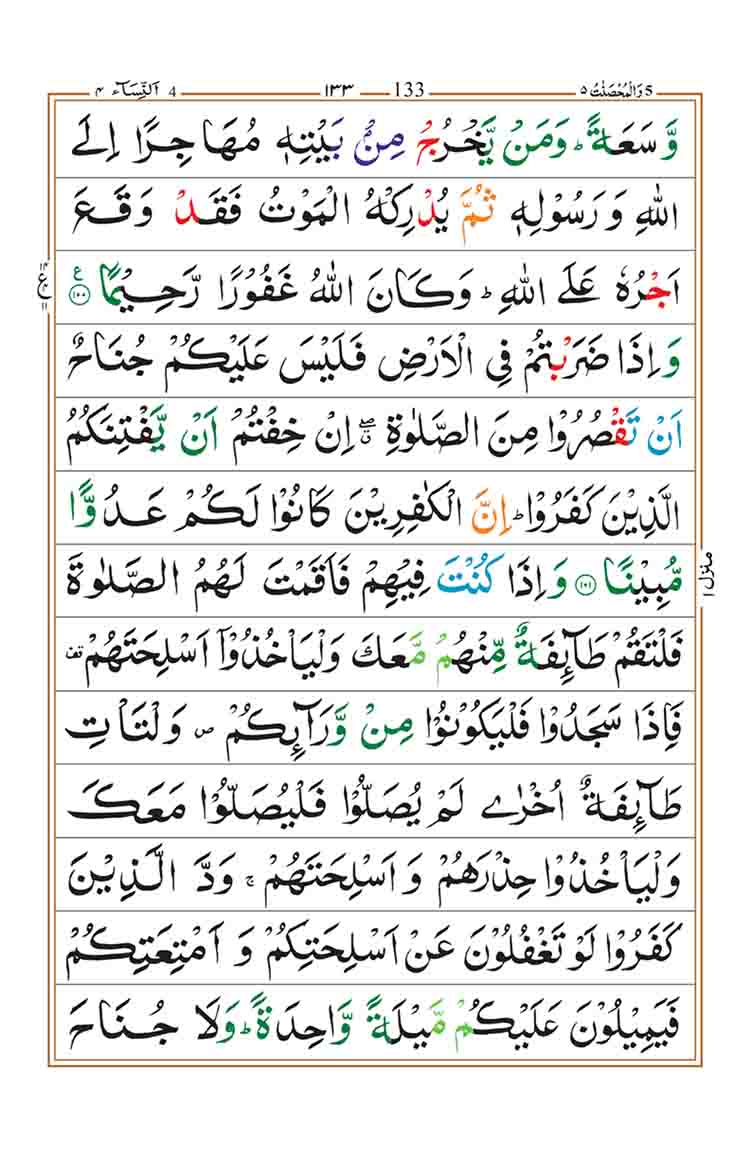 5 وَالْمُحْصَنٰتُ ۵ 133 ۱۳۳ 4 اَلنِّسَآء ۴
وَّسَعَةً ؕ وَمَنْ يَّخْرُجْ مِنْۢ بَيْتِهٖ مُهَاجِرًا اِلَى
اللّٰهِ وَرَسُوْلِهٖ ثُمَّ يُدْرِكْهُ الْمَوْتُ فَقَدْ وَقَعَ
اَجْرُهٗ عَلَى اللّٰهِ ؕ وَكَانَ اللّٰهُ غَفُوْرًا رَّحِيْمًا ۱۰۰ ع
وَاِذَا ضَرَبْتُمْ فِي الْاَرْضِ فَلَيْسَ عَلَيْكُمْ جُنَاحٌ
اَنْ تَقْصُرُوْا مِنَ الصَّلٰوةِ ۖۗ اِنْ خِفْتُمْ اَنْ يَّفْتِنَكُمُ
الَّذِيْنَ كَفَرُوْا ؕ اِنَّ الْكٰفِرِيْنَ كَانُوْا لَكُمْ عَدُوًّا
مُّبِيْنًا ۱۰۱ وَاِذَا كُنْتَ فِيْهِمْ فَاَقَمْتَ لَهُمُ الصَّلٰوةَ
فَلْتَقُمْ طَآئِفَةٌ مِّنْهُمْ مَّعَكَ وَلْيَاْخُذُوْۤا اَسْلِحَتَهُمْ قف
فَاِذَا سَجَدُوْا فَلْيَكُوْنُوْا مِنْ وَّرَآئِكُمْ ص وَلْتَاْتِ
طَآئِفَةٌ اُخْرٰى لَمْ يُصَلُّوْا فَلْيُصَلُّوْا مَعَكَ
وَلْيَاْخُذُوْا حِذْرَهُمْ وَاَسْلِحَتَهُمْ ۚ وَدَّ الَّذِيْنَ
كَفَرُوْا لَوْ تَغْفُلُوْنَ عَنْ اَسْلِحَتِكُمْ وَاَمْتِعَتِكُمْ
فَيَمِيْلُوْنَ عَلَيْكُمْ مَّيْلَةً وَّاحِدَةً ؕ وَلَا جُنَاحَ
ع ۱۴ ۴ ۱۱
منزل ۱